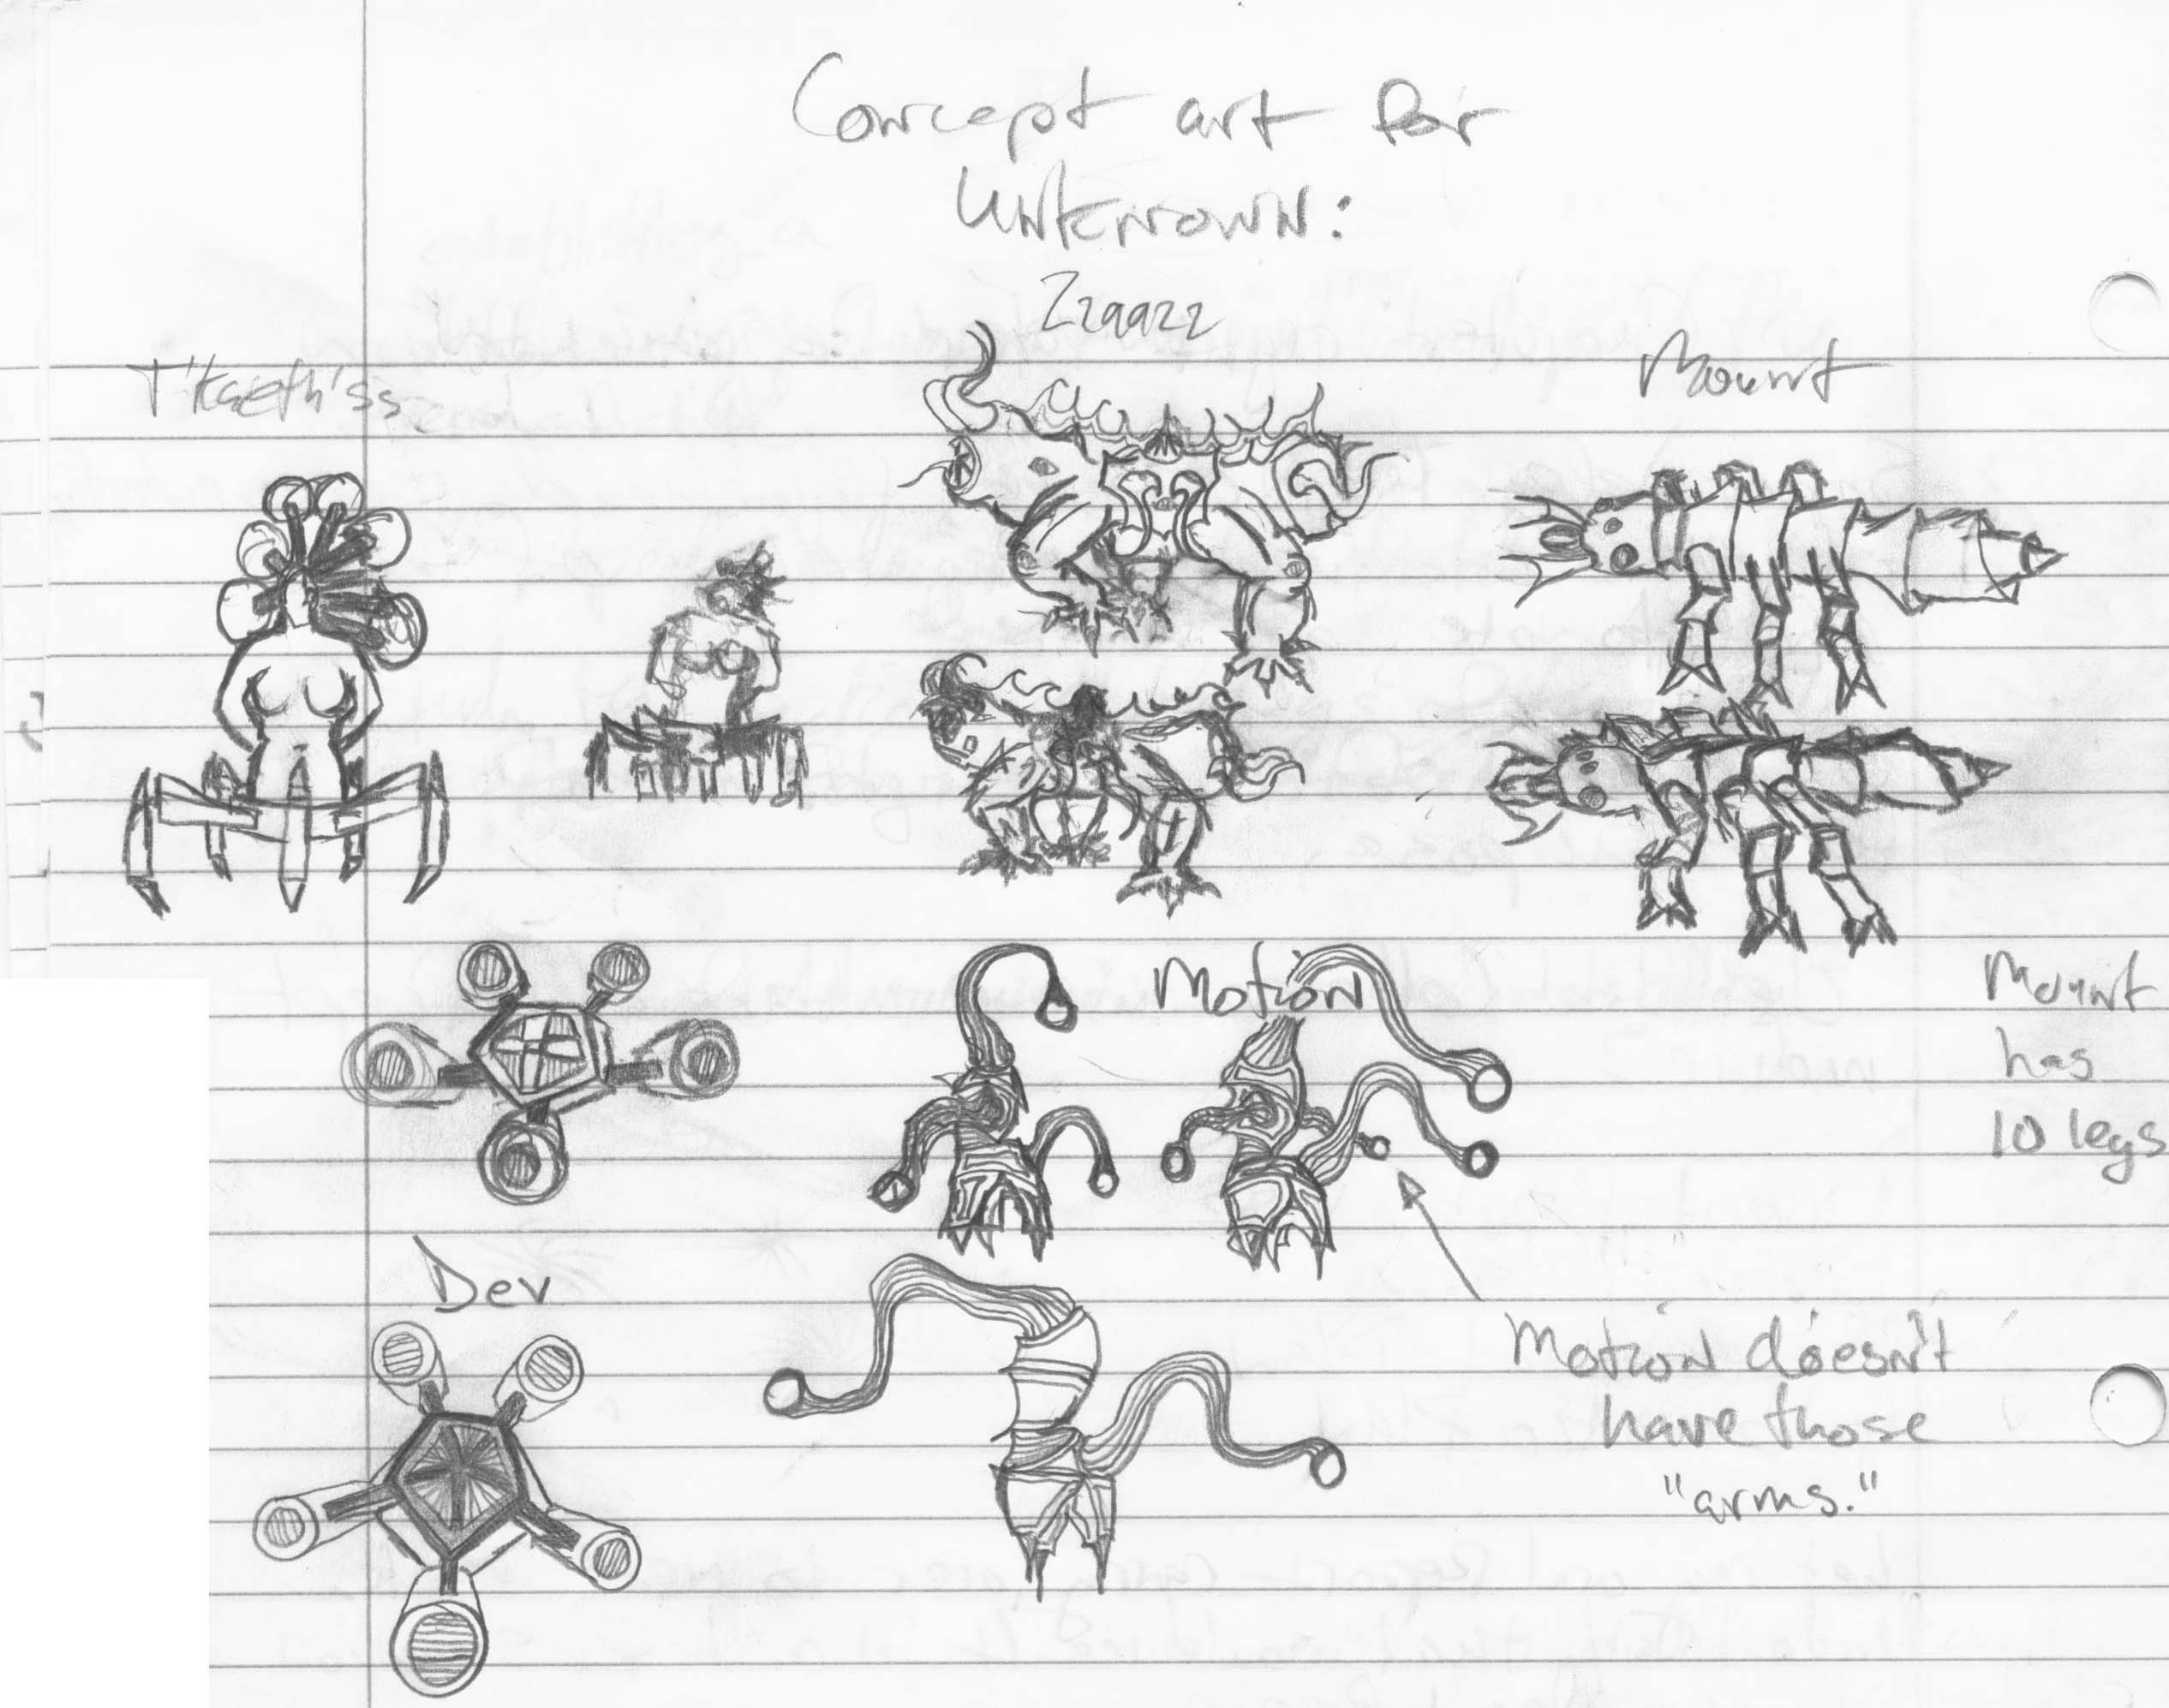 Concept art for
Unknown:
Zzaazz
T'kaeth'ss
Mount
Motion
Mount
has
10 legs
Dev
Motion doesn't
have those
"arms."